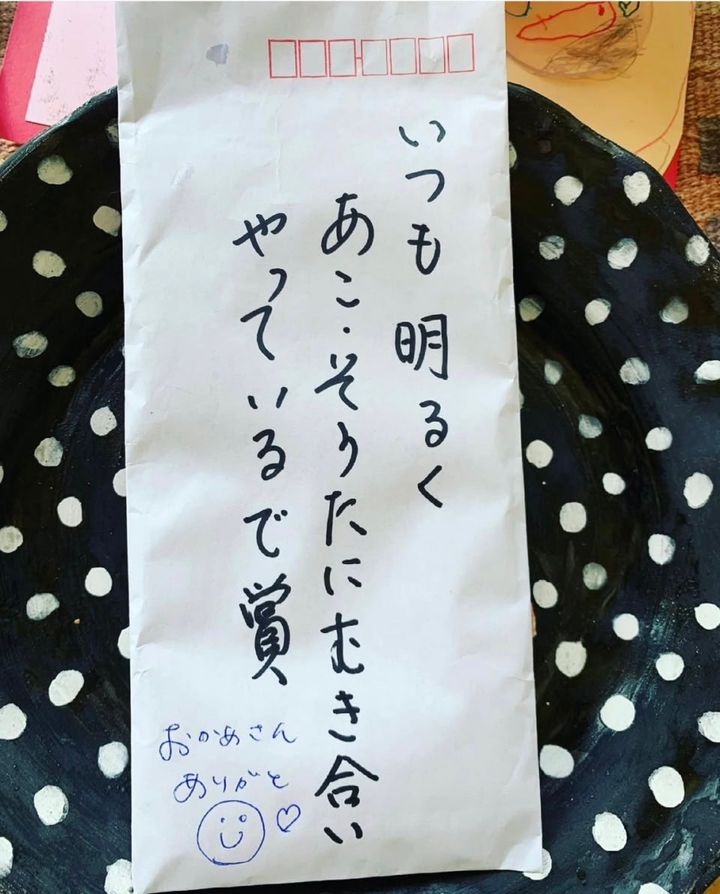 いつも明るく
あこ・そうたにむき合い
やっているで賞
おかあさん
ありがと